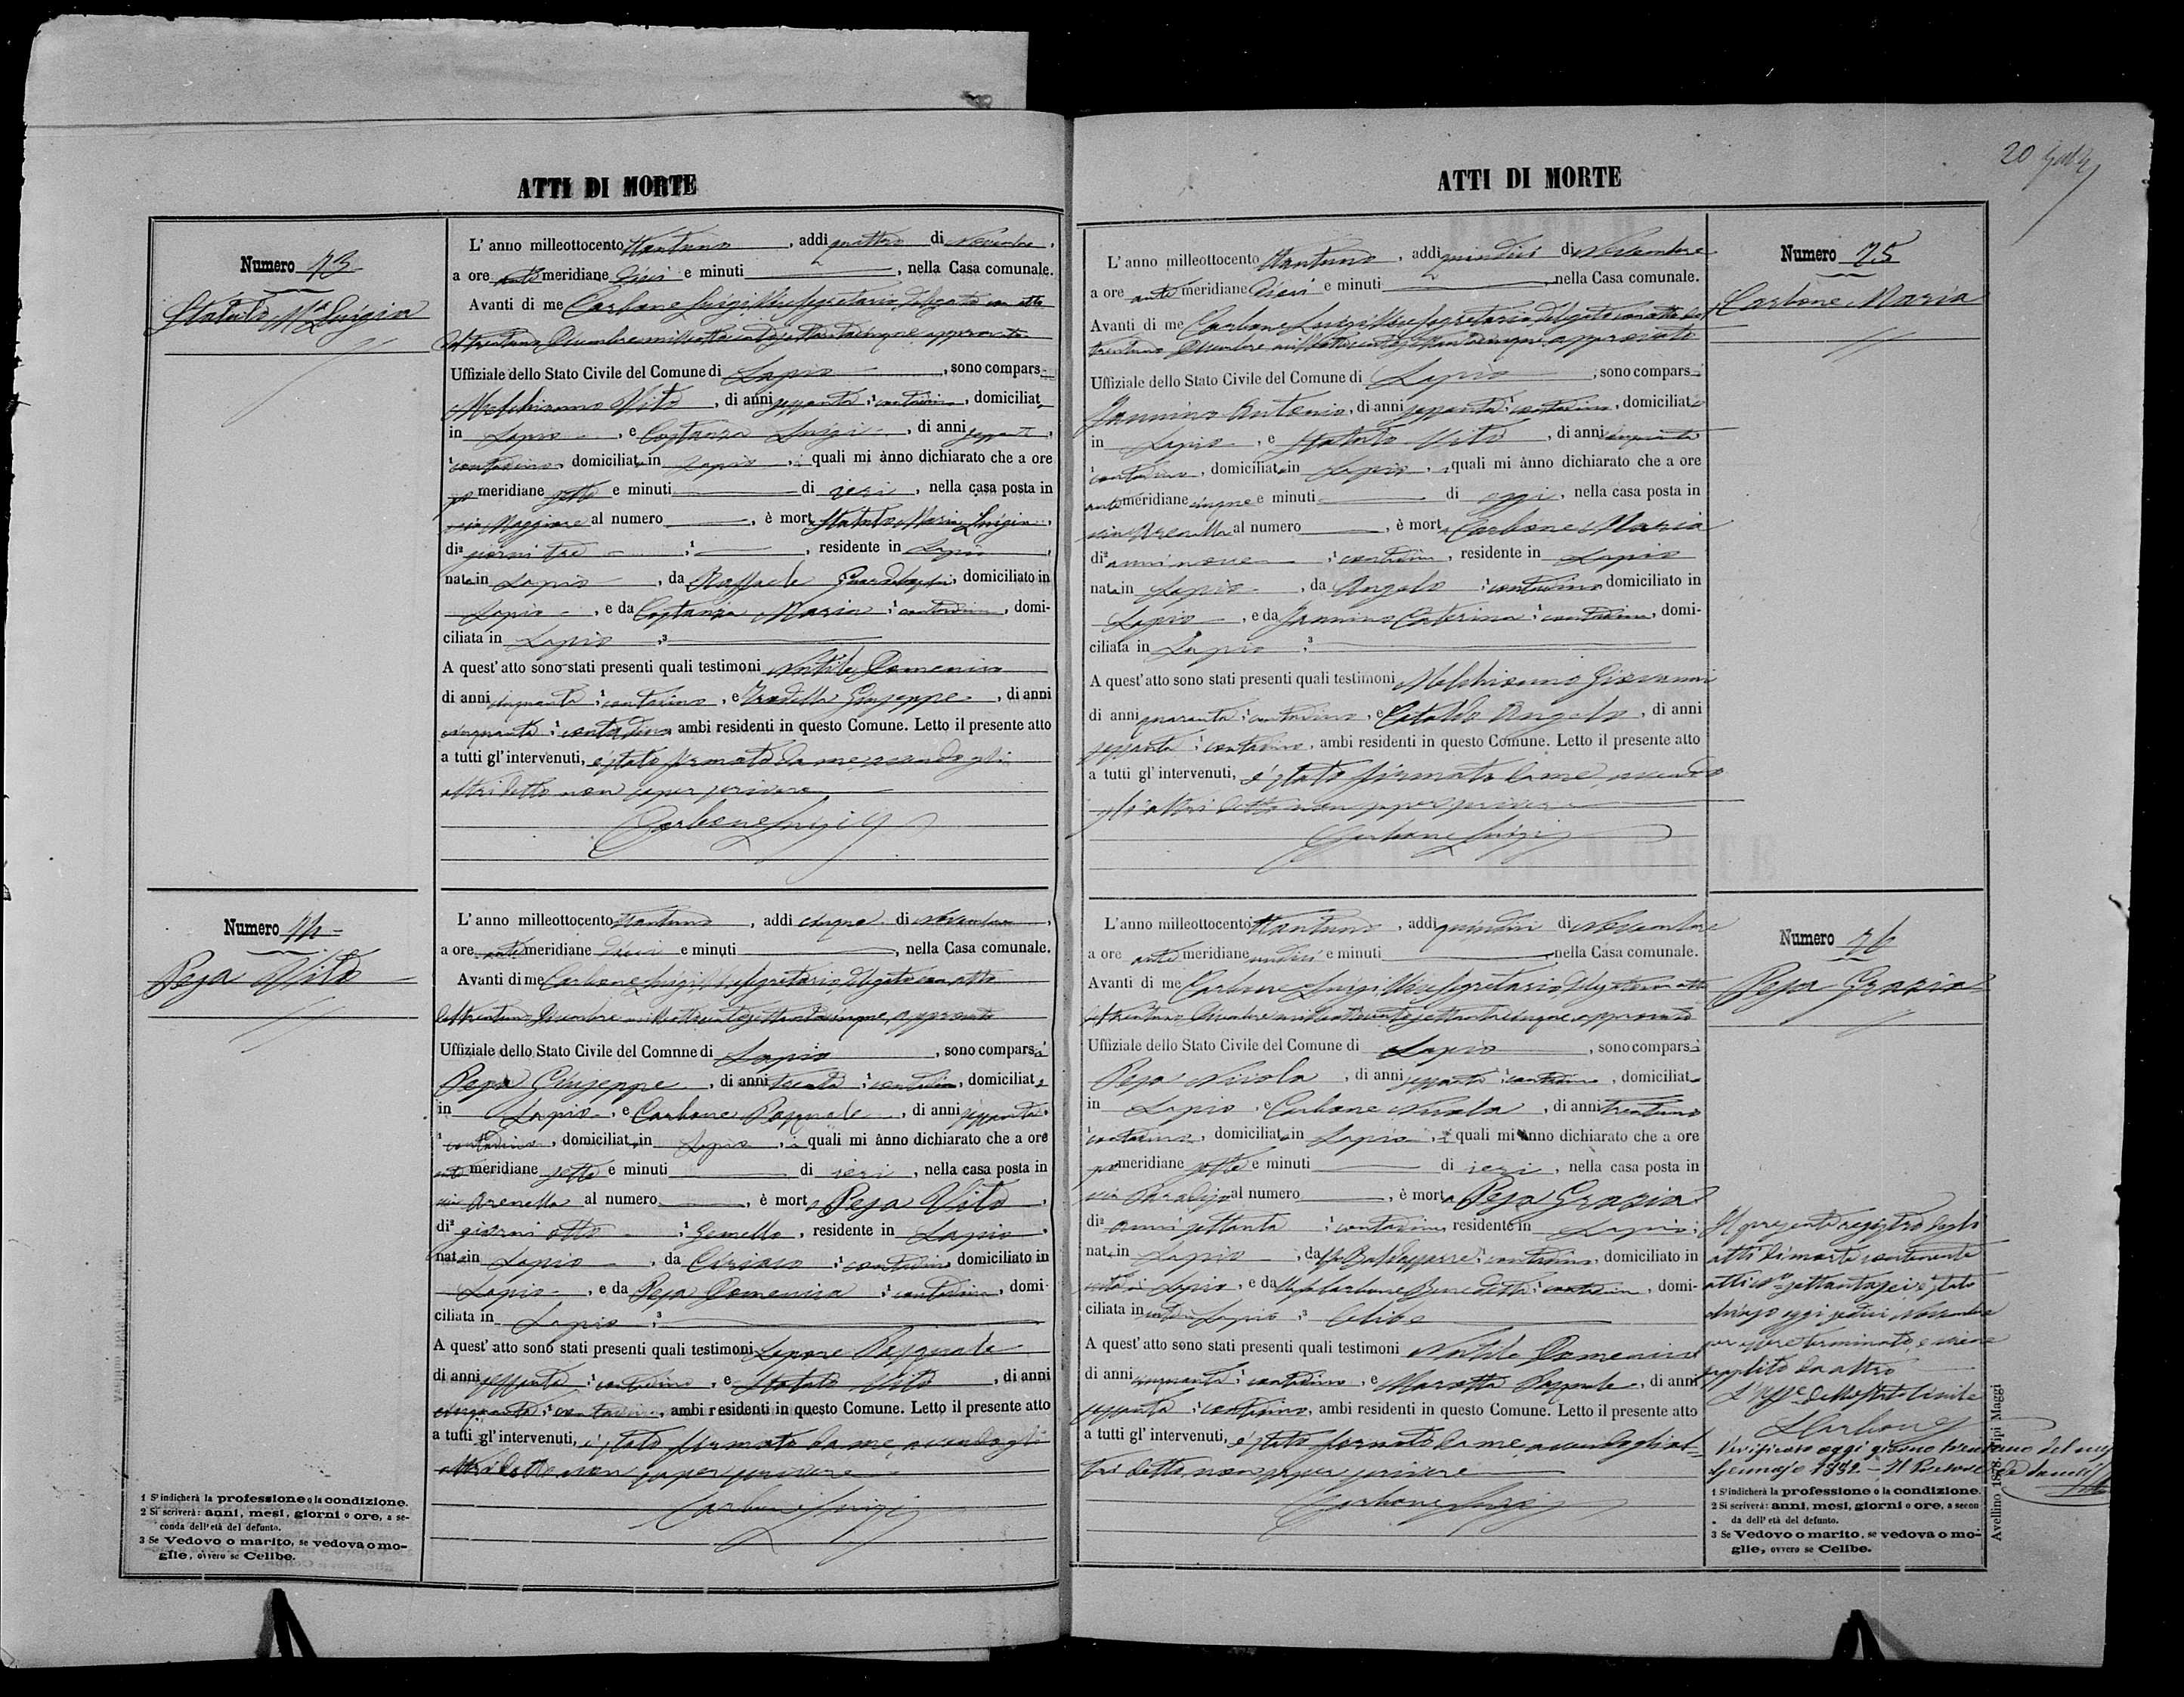 ATTI DI MORTE
Numero 73
Statuto Ma Luigia
L' anno milleottocento ottantuno, addi quattro di Novembre,
a ore ante meridiane dieci e minuti, nella Casa comunale.
Avanti di me Carbone Luigi Vice Segretario delegato con atto
del trentuno Dicembre milleottocentosettantacinque approvato
Uffiziale dello Stato Civile del Comune di Lapio, sono compars i
Melchionno Vito, di anni sessanta, contadino, domiciliat o
in Lapio, e Costanza Luigi, di anni sessanta,
contadino, domiciliato in Lapio, i quali mi ànno dichiarato che a ore
po meridiane sette e minuti di ieri, nella casa posta in
via Maggiore al numero, è morta Statuto Maria Luigia,
di giorni tre, residente in Lapio,
nata in Lapio, da Raffaele, domiciliato in
Lapio, e da Costanza Maria, contadina, domi-
ciliata in Lapio
A quest' atto sono stati presenti quali testimoni Nobile Domenico
di anni cinquanta, contadino, e Giuseppe, di anni
cinquanta, contadino, ambi residenti in questo Comune. Letto il presente atto
a tutti gl' intervenuti, è stato firmato da me avendo gli
altri detto non saper scrivere
Carbone Luigi
Numero 74
Pepa Vito
L' anno milleottocento ottantuno, addi cinque di Novembre,
a ore ante meridiane dieci e minuti, nella Casa comunale.
Avanti di me Carbone Luigi Vice Segretario delegato con atto
del trentuno Dicembre milleottocentosettantacinque approvato
Uffiziale dello Stato Civile del Comnne di Lapio, sono compars i
Pepa Giuseppe, di anni trenta, contadino, domiciliat o
in Lapio, e Carbone Pasquale, di anni sessanta,
contadino, domiciliato in Lapio, i quali mi ànno dichiarato che a ore
ante meridiane sette e minuti di ieri, nella casa posta in
via Arenella al numero, è morto Pepa Vito,
di giorni otto, Gemello, residente in Lapio,
nato in Lapio, da Ciriaco, contadino, domiciliato in
Lapio, e da Pepa Domenica, contadina, domi-
ciliata in Lapio
A quest' atto sono stati presenti quali testimoni Lepore Pasquale
di anni sessanta, contadino, e Statuto Vito, di anni
cinquanta, contadino, ambi residenti in questo Comune. Letto il presente atto
a tutti gl' intervenuti, è stato firmato da me, avendo gli
altri detto non saper scrivere
Carbone Luigi
1 S' indicherà la professione o la condizione.
2 Si scriverà: anni, mesi, giorni o ore, a se-
conda dell' età del defunto.
3 Se Vedovo o marito, se vedova o mo-
glie, ovvero se Celibe.
20
ATTI DI MORTE
L' anno milleottocento ottantuno, addi quindici di Novembre
a ore ante meridiane dieci e minuti, nella Casa comunale.
Avanti di me Carbone Luigi Vice Segretario delegato con atto del
trentuno Dicembre milleottocentosettantacinque approvato
Uffiziale dello Stato Civile del Comune di Lapio, sono compars i
Jannino Antonio, di anni sessanta, contadino, domiciliat o
in Lapio, e Statuto Vito, di anni cinquanta
contadino, domiciliato in Lapio, i quali mi ànno dichiarato che a ore
ante meridiane cinque e minuti di oggi, nella casa posta in
via Arenella al numero, è morta Carbone Maria
di anni nove, contadina, residente in Lapio
nata in Lapio, da Angelo, contadino domiciliato in
Lapio, e da Jannino Caterina, contadina, domi-
ciliata in Lapio
A quest' atto sono stati presenti quali testimoni Melchionno Giovanni
di anni quaranta, contadino, e Cataldo Angelo, di anni
sessanta, contadino, ambi residenti in questo Comune. Letto il presente atto
a tutti gl' intervenuti, è stato firmato da me, avendo
gli altri detto non saper scrivere
Carbone Luigi
Numero 75
Carbone Maria
L' anno milleottocento ottantuno, addi quindici di Novembre
a ore ante meridiane undici e minuti, nella Casa comunale.
Avanti di me Carbone Luigi Vice Segretario delegato con atto
del trentuno Dicembre milleottocentosettantacinque, approvato
Uffiziale dello Stato Civile del Comune di Lapio, sono compars i
Pepa Nicola, di anni sessanta, contadino, domiciliat o
in Lapio, e Carbone Nicola, di anni trentuno
contadino, domiciliato in Lapio, i quali mi ànno dichiarato che a ore
po meridiane sette e minuti di ieri, nella casa posta in
via Paradiso al numero, è morta Pepa Grazia
di anni settanta, contadina residente in Lapio,
nata in Lapio, da fu Baldassarre, contadino, domiciliato in
Lapio, e da fu Carbone Benedetta, contadina, domi-
ciliata in Lapio, Celibe
A quest' atto sono stati presenti quali testimoni Nobile Domenico
di anni cinquanta, contadino, e Marotta Pasquale, di anni
sessanta, contadino, ambi residenti in questo Comune. Letto il presente atto
a tutti gl' intervenuti, è stato firmato da me, avendo gli al-
tri detto non saper scrivere
Carbone Luigi
Numero 76
Pepa Grazia
Il presente registro degli
atti di morte contenente
atti No settantasei è stato
chiuso oggi sedici Novembre
per essere terminato, e viene
supplito da altro
L'Uffle dello Stato Civile
LCarbone
Verificato oggi giorno trentuno del mese
Gennajo 1882 - Il Pretore
1 S' indicherà la professione o la condizione.
2 Si scriverà: anni, mesi, giorni o ore, a secon
da dell' età del defunto.
3 Se Vedovo o marito, se vedova o mo-
glie, ovvero se Celibe.
Avellino 1878. Tipi Maggi